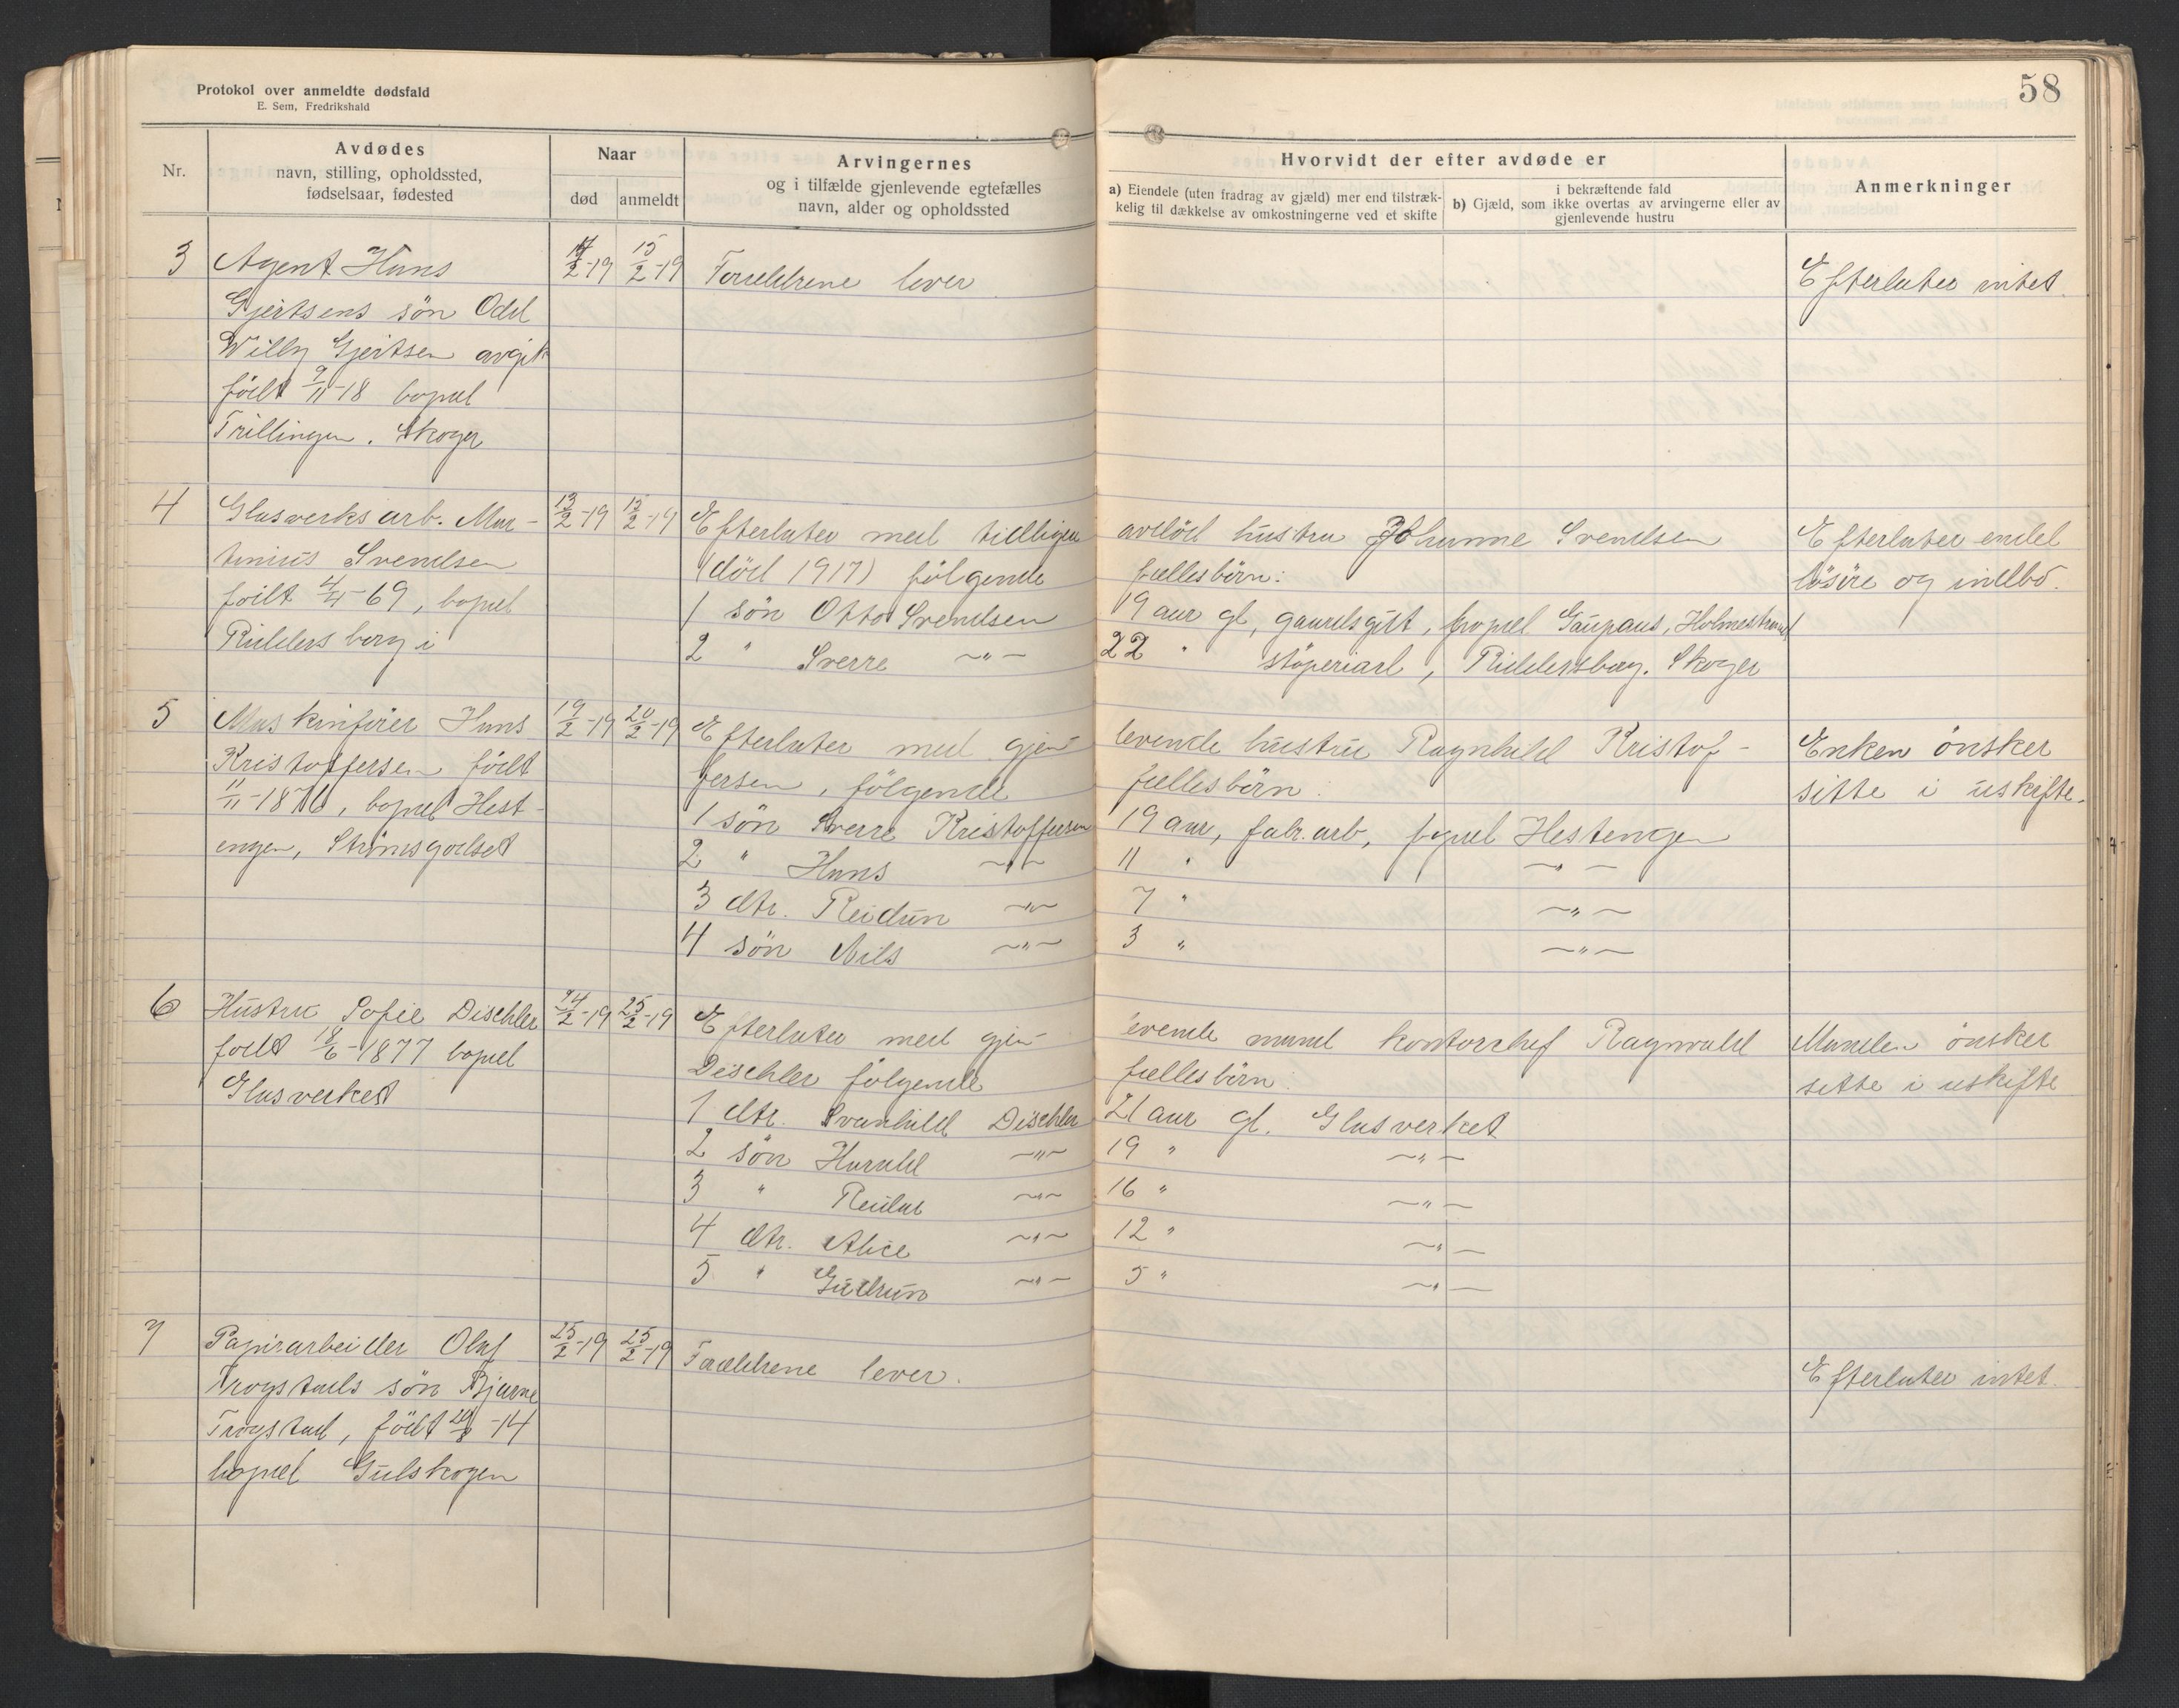 58
Protokol over anmeldte dødsfald
E. Sem, Fredrikshald
Nr.
Avdødes
navn, stilling, opholdssted,
fødselsaar, fødested
Naar
død anmeldt
Arvingernes
og i tilfælde gjenlevende egtefælles
navn, alder og opholdssted
Hvorvidt der efter avdøde er
a) Eiendele (uten fradrag av gjæld) mer end tilstræk-
kelig til dækkelse av omkostningerne ved et skifte
i bekræftende fald
b) Gjæld, som ikke overtas av arvingerne eller av
gjenlevende hustru
Anmerkninger
3 Agent Hans 15/2-19 Forældrene lever Efterlater intet
Gjertsens søn Odd
Willy Gjertsen avgik
født 9/11-18 bopæl
Trillingen. Skoger
4 Glasverksarb. Mar- 13/2-19 15/2-19 Efterlater med tidligere avdød hustru Johanne Svendsen Efterlater endel
tinius Svendsen (død 1917) følgende fællesbørn: løsøre og indbo.
født 4/4-69, bopæl 1 søn Otto Svendsen 19 aar gl, gaardsgut, bopæl Gaupaus, Holmestrand
Riddersberg i 2 " Sverre —"— 22 " støperiarb, Riddersberg. Skoger
5 Maskinfører Hans 19/2-19 20/2-19 Efterlater med gjen- levende hustru Ragnhild Kristof- Enken ønsker
Kristoffersen født fersen, følgende fællesbørn: sitte i uskifte.
11/11-1876, bopæl Hest- 1 søn Sverre Kristoffersen 19 aar, fabr.arb, bopæl Hestengen
engen, Strømsgodset 2 " Hans —"— 11 " —"—
3 dtr. Reidun —"— 7 " —"—
4 søn Nils —"— 3 " —"—
6 Hustru Sofie Dischler 24/2-19 25/2-19 Efterlater med gjen- levende mand kontorchef Ragnvald Manden ønsker
født 18/6-1877 bopæl Dischler følgende fællesbørn: sitte i uskifte
Glasverket 1 dtr. Svanhild Dischler 21 aar gl. Glasverket
2 søn Harald —"— 19 " —"—
3 " Reidar —"— 16 " —"—
4 dtr. Alice —"— 12 " —"—
5 " Gudrun —"— 5 " —"—
7 Papirarbeider Olaf 25/2-19 25/2-19 Forældrene lever. Efterlater intet.
Trogstads søn Bjarne
Trogstad, født -14
bopæl Gulskogen